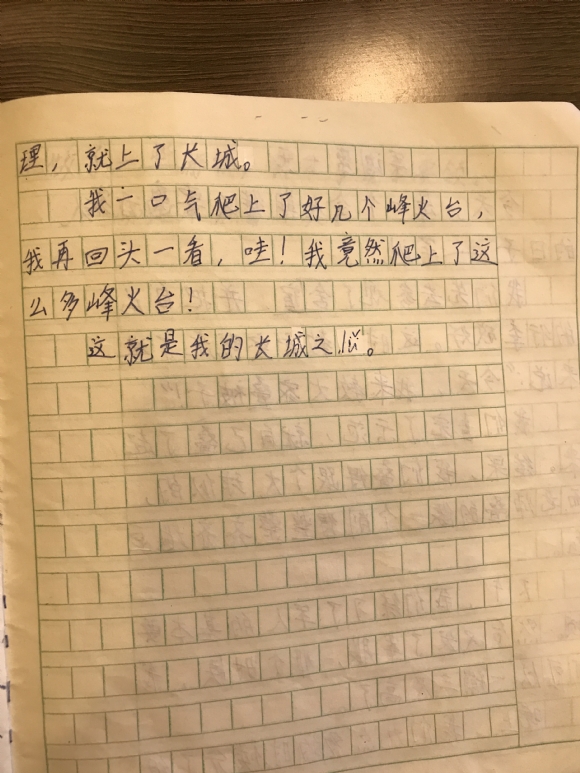 理，就上了长城。
我一口气爬上了好几个峰火台，
我再回头一看，哇！我竟然爬上了这
么多峰火台！
这就是我的长城之旅。